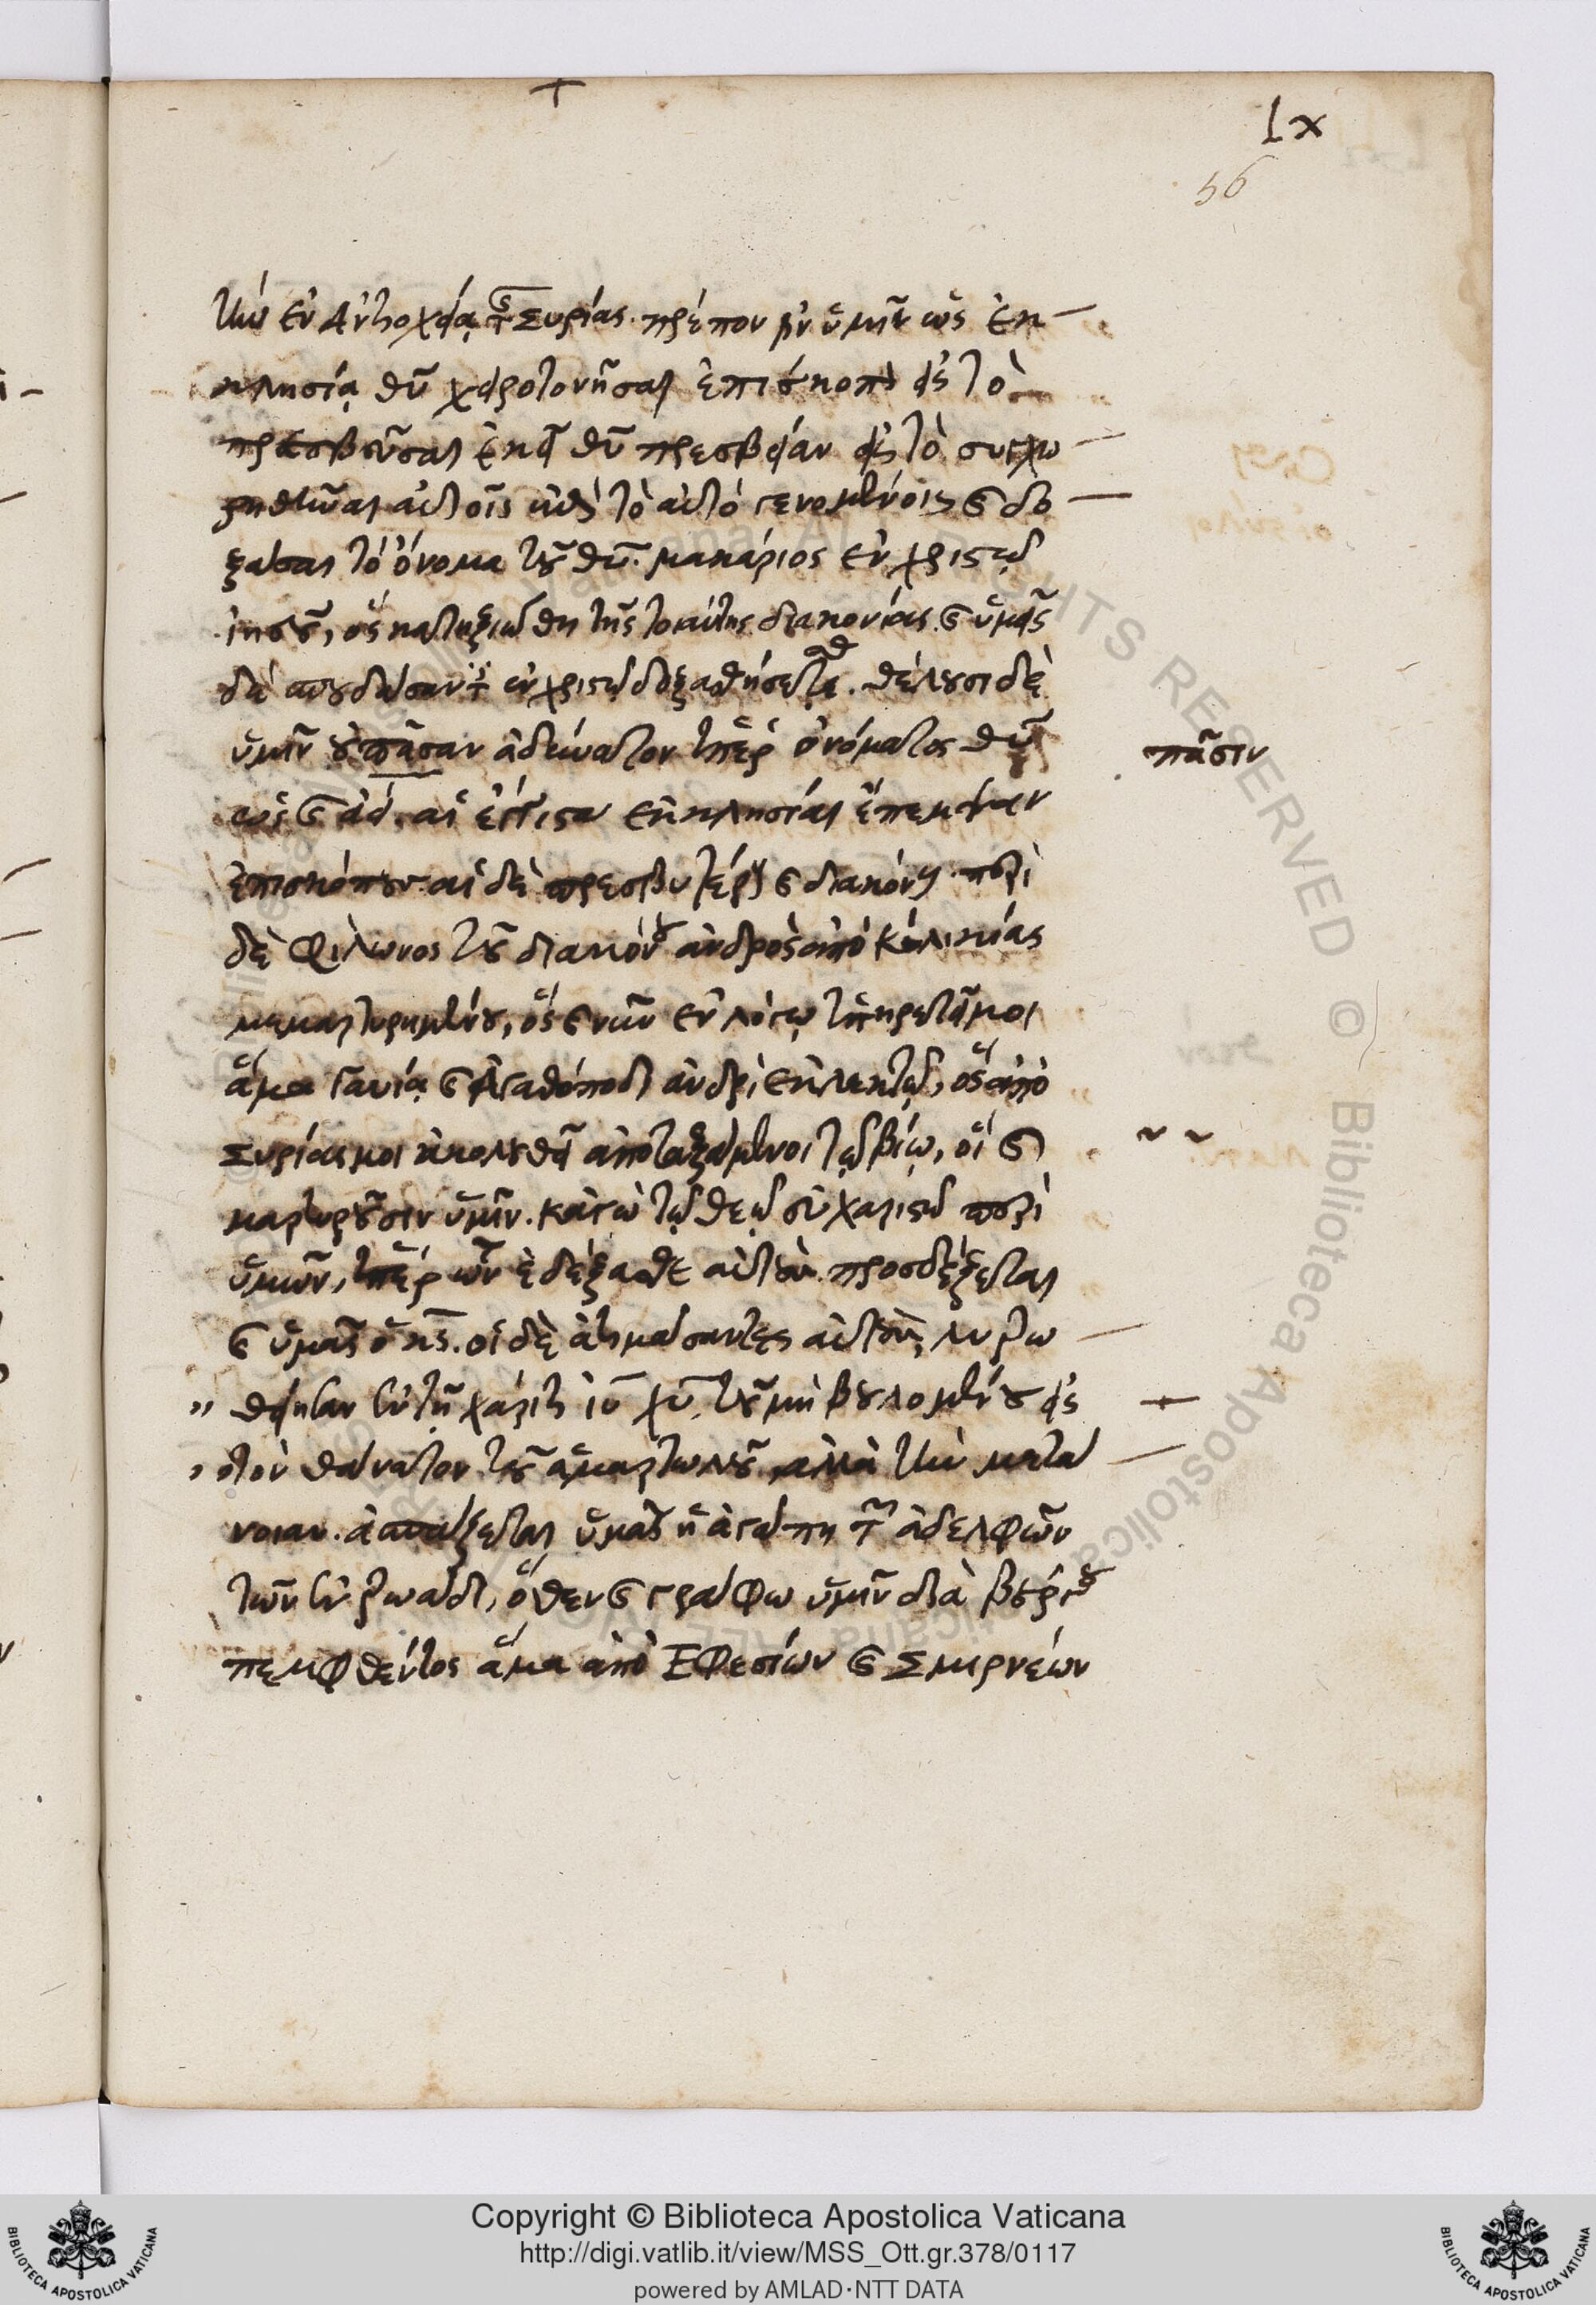 +
Lx
56
τὴν ἐν Ἀντιοχείᾳ τῆς Συρίας. πρέπον ἐν ὑμῖν ὡς ἐκ–
κλησίᾳ θῦ χειροτονῆσαι ἐπίσκοπον εἰς τὸ
πρεσβεῦσαι ἐκεῖ θῦ πρεσβείαν εἰς τὸ συγχω–
ρηθῆναι αὐτοῖς ἐπὶ τὸ αὐτὸ γενομένοις καὶ δο–
ξάσαι τὸ ὄνομα τοῦ θῦ. μακάριος ἐν χριστῷ
ἰησοῦ, ὃς κατηξιώθη τῆς τοιαύτης διακονίας. καὶ ὑμεῖς
δὲ σπουδάσαντες ἐν χριστῷ δοξασθήσεσθε. θέλουσι δὲ
ὑμῖν οὐ πᾶσαν ἀδύνατον ὑπὲρ ὀνόματος θῦ
πᾶσιν
ὡς καὶ ἀεὶ. αἱ ἔγγιστα ἐκκλησίαι ἔπεμψαν
ἐπισκόπους. αἱ δὲ πρεσβυτέρους καὶ διακόνους. περὶ
δὲ Φίλωνος τοῦ διακόνου ἀνδρὸς ἀπὸ Κιλικίας
μεμαρτυρημένου, ὃς καὶ νῦν ἐν λόγῳ ὑπηρετεῖ μοι
ἅμα Γαυΐᾳ καὶ Ἀγαθόποδι ἀνδρὶ ἐκλεκτῷ, ὃς ἀπὸ
Συρίας μοι ἀκολουθεῖ ἀποταξάμενοι τῷ βίῳ, οἳ καὶ
μαρτυροῦσιν ὑμῖν. κἀγὼ τῷ θεῷ εὐχαριστῶ περὶ
ὑμῶν, ὑπὲρ ὧν ἐδέξασθε αὐτοὺς. προσδέξεται
καὶ ὑμᾶς ὁ κς. οἱ δὲ ἀτιμάσαντες αὐτοὺς, λυτρω–
„ θείησαν ἐν τῇ χάριτι ἰῦ χῦ. τοῦ μὴ βουλομένου εἰς
, τὸν θάνατον τοῦ ἁμαρτωλοῦ, ἀλλὰ τὴν μετά–
νοιαν. ἀσπάζεται ὑμᾶς ἡ ἀγάπη τῶν ἀδελφῶν
τῶν ἐν τρωάδι, ὅθεν καὶ γράφω ὑμῖν διὰ βούργου
πεμφθέντος ἅμα ἀπὸ Ἐφεσίων καὶ Σμυρνέων
Copyright © Biblioteca Apostolica Vaticana
http://digi.vatlib.it/view/MSS_Ott.gr.378/0117
powered by AMLAD·NTT DATA